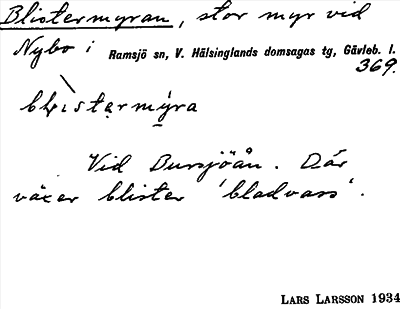 Blistermyran, stor myr vid
Nybo i Ramsjö sn, V. Hälsinglands domsagas tg, Gävleb. l.
369.
blistermýra
Vid Bursjöån. Där
växer blister 'bladvass'.
LARS LARSSON 1934